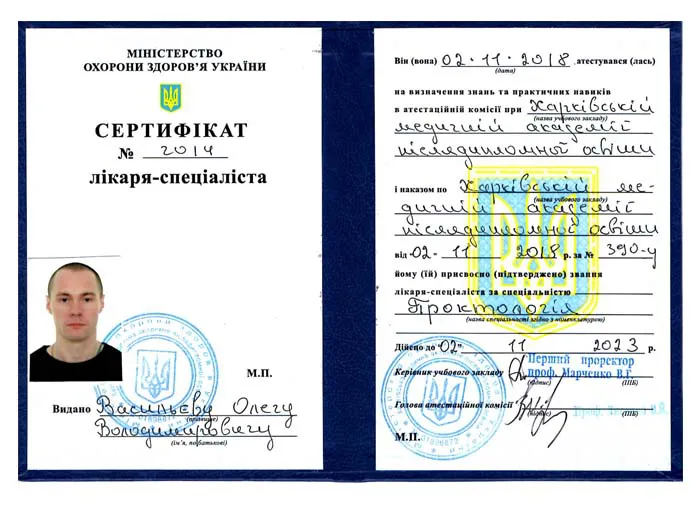 МІНІСТЕРСТВО
ОХОРОНИ ЗДОРОВ'Я УКРАЇНИ
СЕРТИФІКАТ
№ 2014
лікаря-спеціаліста
М.П.
Видано Васильєву Олегу
(прізвище)
Володимировичу
(ім'я, по батькові)
Він (вона) 02.11.2018, атестувався (лась)
(дата)
на визначення знань та практичних навиків
в атестаційній комісії при Харківській
(назва учбового закладу)
медичній академії
післядипломної освіти
і наказом по Харківській ме-
(назва учбового закладу)
дичній академії
післядипломної освіти
від 02 11 2018 р. за № 390-у
йому (їй) присвоєно (підтверджено) звання
лікаря-спеціаліста за спеціальністю
Проктологія
(назва спеціальності згідно з номенклатурою)
Дійсно до "02" 11 2023 р.
Перший проректор
Керівник учбового закладу проф. Марченко В.Г.
(підпис) (ПІБ)
Голова атестаційної комісії
(підпис) (ПІБ)
М.П.